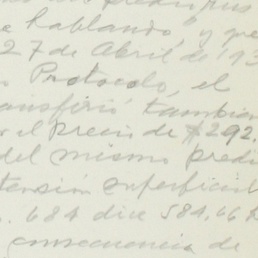 hablando, y que
27 de Abril de 193
Protocolo, el
transfirió tambien
el precio de $292.
del mismo predi
tensión superficial
684 dice 584,66
consecuencia de